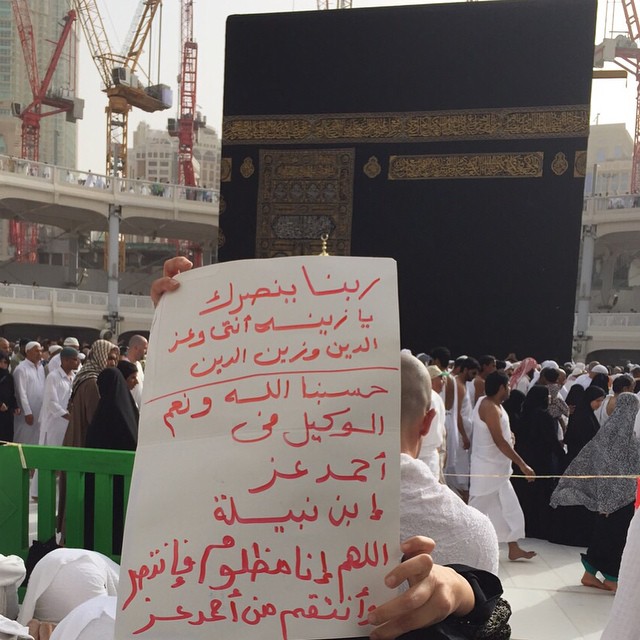 ربنا ينصرك
يا زينه أنتى وعز
الدين وزين الدين
حسبنا الله ونعم
الوكيل فى
أحمد عز
إبن نبيلة
اللهم إنا مظلوم فإنتصر
وأنتقم من أحمد عز